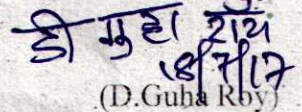 डी गुहा रॉय
18/7/17
(D.Guha Roy)